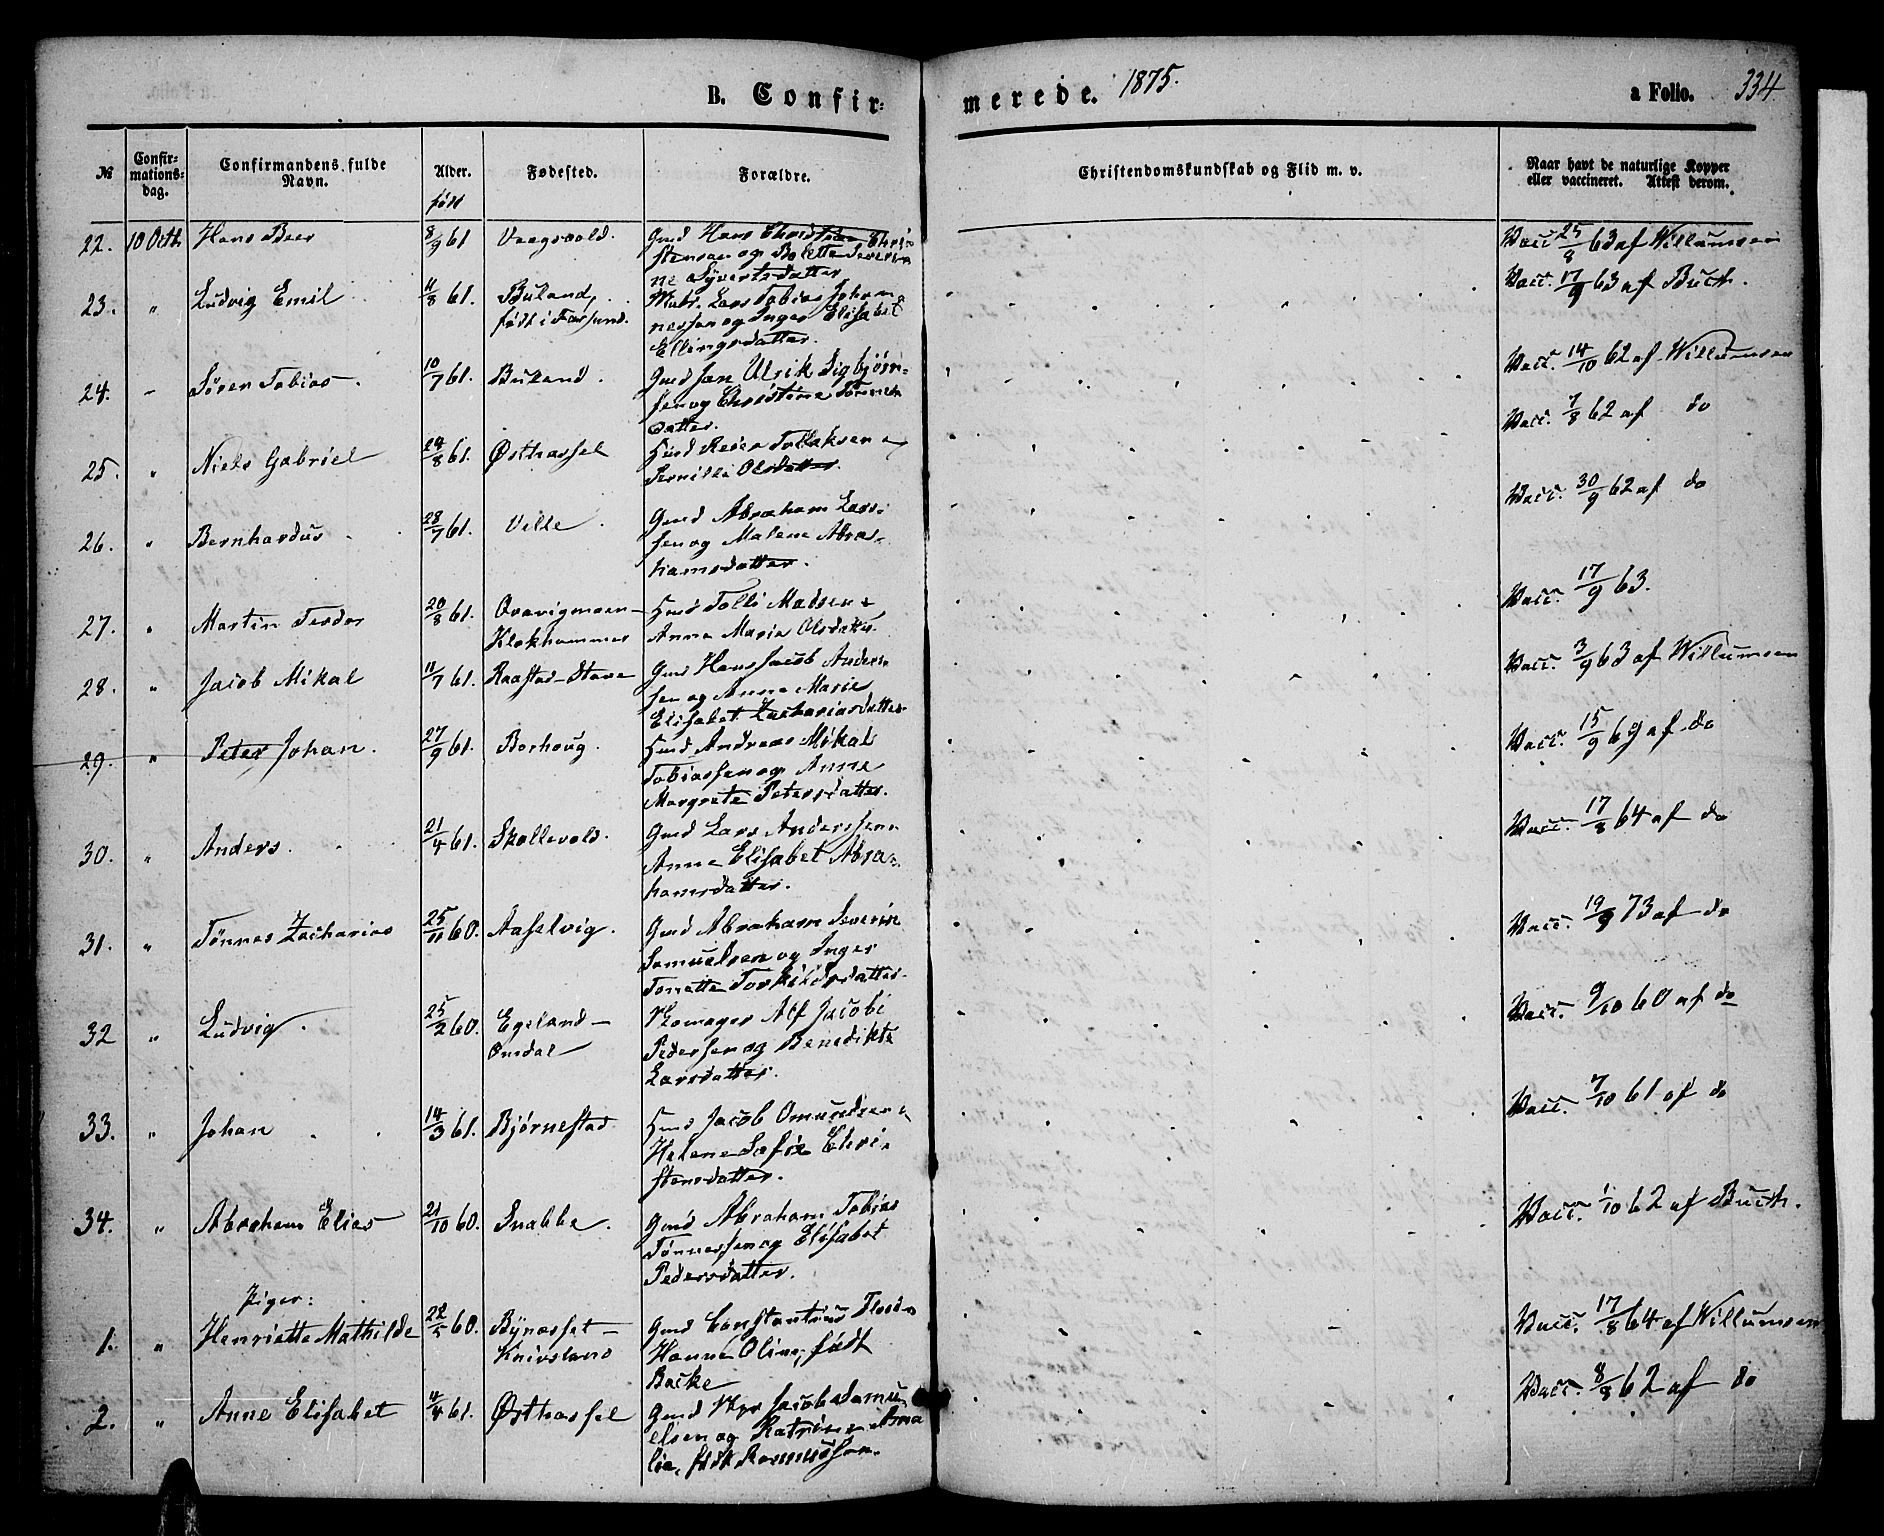 B. Confir-
merede. 1875.
a Folio. 334.
№
Confir-
mations-
dag.
Confirmandens fulde
Navn.
Alder.
født
Fødested.
Forældre.
Christendomskundskab og Flid m. v.
Naar havt de naturlige Kopper
eller vaccineret. Attest derom.
22. 10 Octb Hans Beer 8/9 61 Vaagsvold. Gmd Hans Christian Chri-
stensen og Bolette Severi-
ne Syvertsdatter
Vacc 25/8 63 af Willumsen
23. " Ludvig Emil 11/8 61. Buland,
født i Farsund.
Matr. Lars Tobias Johan-
nessen og Inger Elisabet
Ellingsdatter.
Vacc. 17/9 63 af Buch.
24. " Sören Tobias. 10/7 61. Buland. Gmd Jan Ulrik Sigbjörn-
sen og Christine Tönnes
datter.
Vacc. 14/10 62 af Willumsen
25. " Niels Gabriel 24/8 61. Østhassel Hmd Reier Tollaksen &
Pernille Olsdatter.
Vacc. 7/8 62 af do
26. " Bernhardus 28/7 61. Velle Gmd Abraham Lars-
sen og Malene Abra-
hamsdatter.
Vacc. 30/9 62 af do
27. " Martin Teodor 20/8 61. Ore­vigmoen-
Klokhammer
Hmd Tolli Madsen &
Anne Marie Olsdatter
Vacc. 17/9 63.
28. " Jacob Mikal 11/7 61. Raastad-Stave Gmd Hans Jacob Ander-
sen og Anne Marie
Elisabet Zachariasdatter
Vacc. 3/9 63 af Willumsen
29. " Peter Johan. 27/9 61. Borhoug. Hmd Andreas Mikal
Tobiassen og Anne
Margrete Petersdatter.
Vacc. 15/9 69 af do
30. " Anders. 21/4 61. Skollevold. Gmd Lars Anderssen &
Anne Elisabet Abra-
hamsdatter.
Vacc. 17/8 64 af do
31. " Tönnes Zacharias 25/11 60. Aaselvig. Gmd Abraham Severin
Samuelsen og Inger
Tonette Torkildsdatter
Vacc. 19/9 73 af do
32 " Ludvig. 25/2 60. Egeland-
Omdal
Skomager Alf Jacob
Pedersen og Benedikte
Larsdatter.
Vacc. 9/10 60 af do
33. " Johan 14/3 61. Bjørnestad Hmd Jacob Omundsen &
Helene Sofie Chri-
stensdatter.
Vacc. 7/10 61 af do
34. " Abraham Elias 21/10 60. Snabbe. Gmd Abraham Tobias
Tönnessen og Elisabet
Pedersdatter.
Vacc. 1/10 62 af Buch.
Piger:
1. " Henriette Mathilde 60. Bynesset-
Knivsland
Gmd Constantius Flood &
Hanne Oline, født
Backe
Vacc. 17/8 64 af Willumsen
2. " Anne Elisabet 4/4 61. Østhassel Gmd Skpr Jacob Samu-
elsen og Katrine Ama
lia, født Rasmussen.
Vacc. 8/8 62 af do